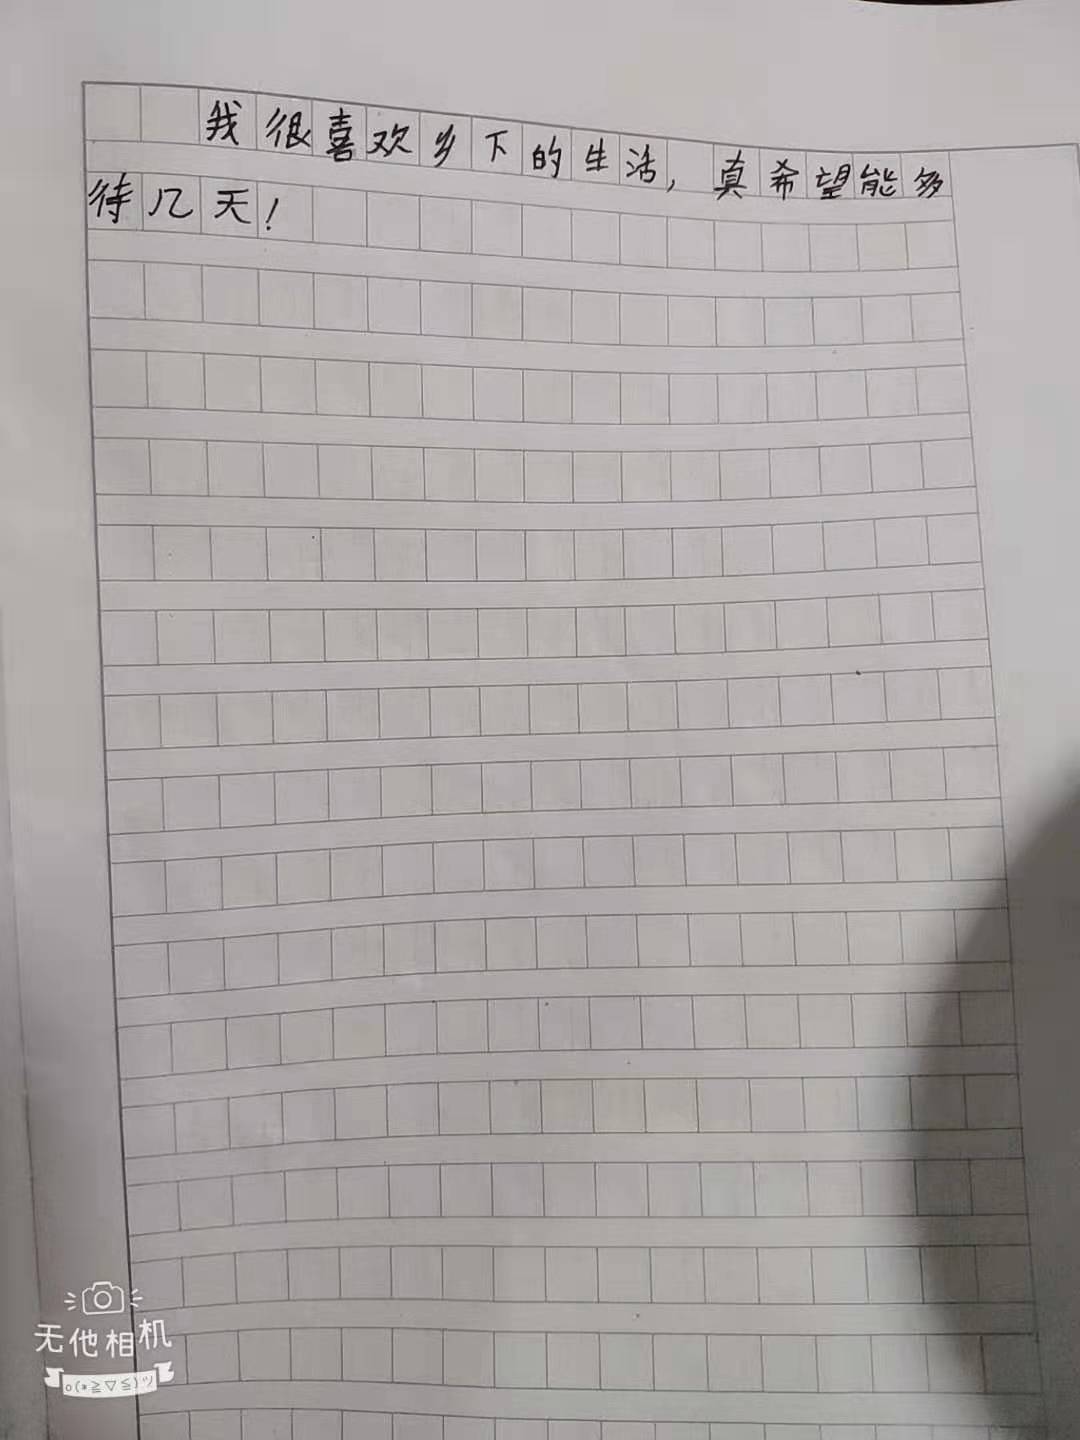 我很喜欢乡下的生活，真希望能多
待几天！
无他相机
o(*≧▽≦)ツ